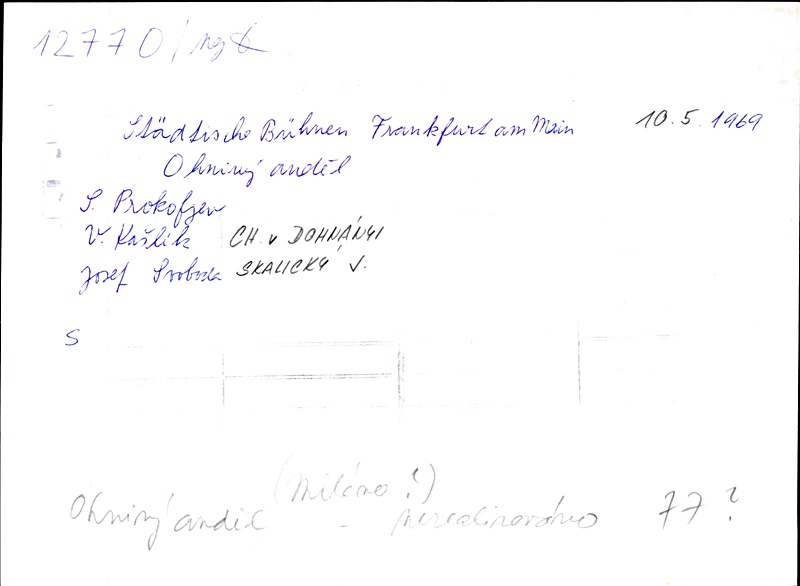 12770/neg
Städtische Bühnen Frankfurt am Main 10.5.1969
Ohnivý anděl
S. Prokofjev
V. Kašlík CH. v DOHNÁNYI
Josef Svoboda SKALICKÝ J.
S
(Miláno?)
Ohnivý anděl - nerealizováno 77?